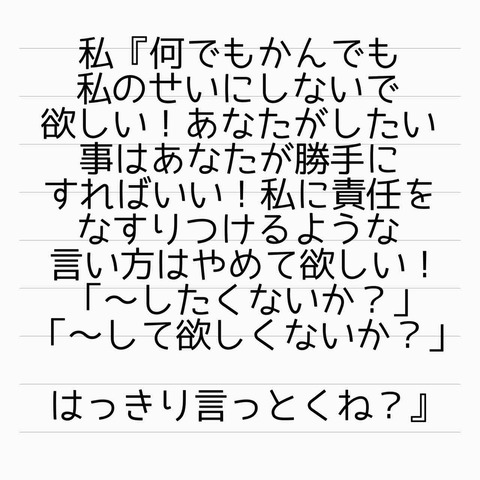 私『何でもかんでも
私のせいにしないで
欲しい！あなたがしたい
事はあなたが勝手に
すればいい！私に責任を
なすりつけるような
言い方はやめて欲しい！
「〜したくないか？」
「〜して欲しくないか？」
はっきり言っとくね？』